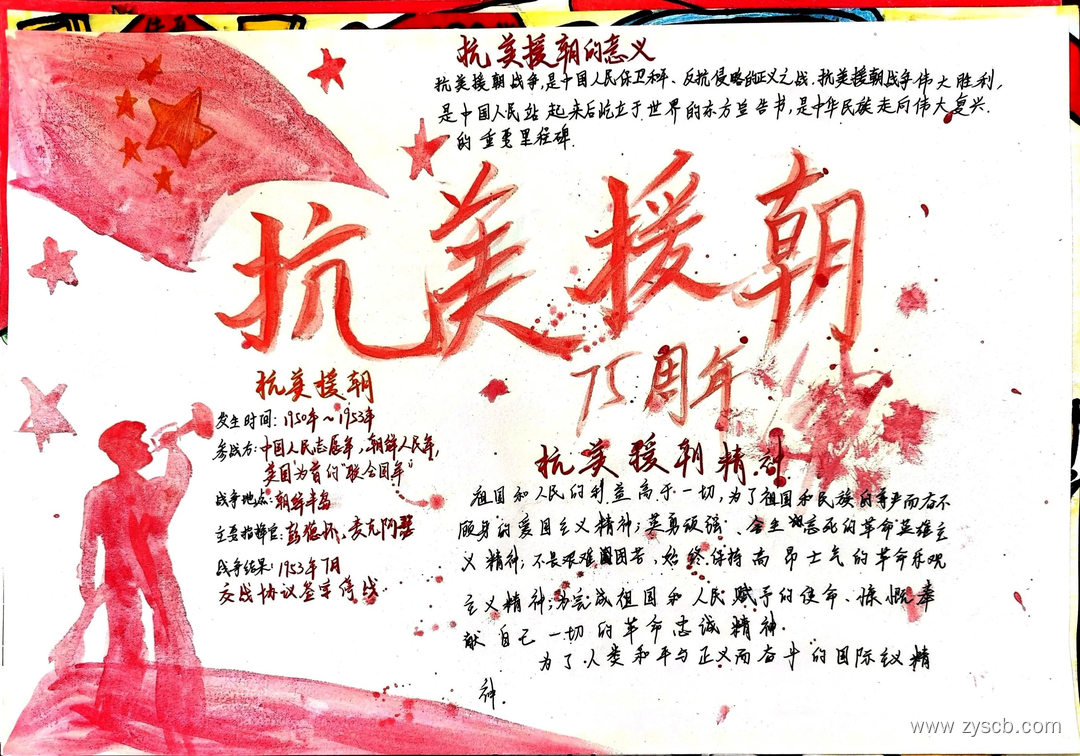 抗美援朝的意义
抗美援朝战争,是中国人民保卫和平、反抗侵略的正义之战.抗美援朝战争伟大胜利,
是中国人民站起来后屹立于世界的东方宣告书,是中华民族走向伟大复兴.
的重要里程碑.
抗美援朝
75周年
抗美援朝
发生时间:1950年~1953年
参战方:中国人民志愿军,朝鲜人民军,
美国为首的"联合国军"
战争地点:朝鲜半岛
主要指挥官:彭德怀,麦克阿瑟
战争结果:1953年7月
交战协议签字停战.
抗美援朝精神
祖国和人民的利益高于一切,为了祖国和民族的尊严而奋不
顾身的爱国主义精神;英勇顽强、舍生忘死的革命英雄主
义精神;不畏艰难困苦,始终保持高昂士气的革命乐观
主义精神;为完成祖国和人民赋予的使命、慷慨奉
献自己一切的革命忠诚精神.
为了人类和平与正义而奋斗的国际主义精
神.
www.zyscb.com